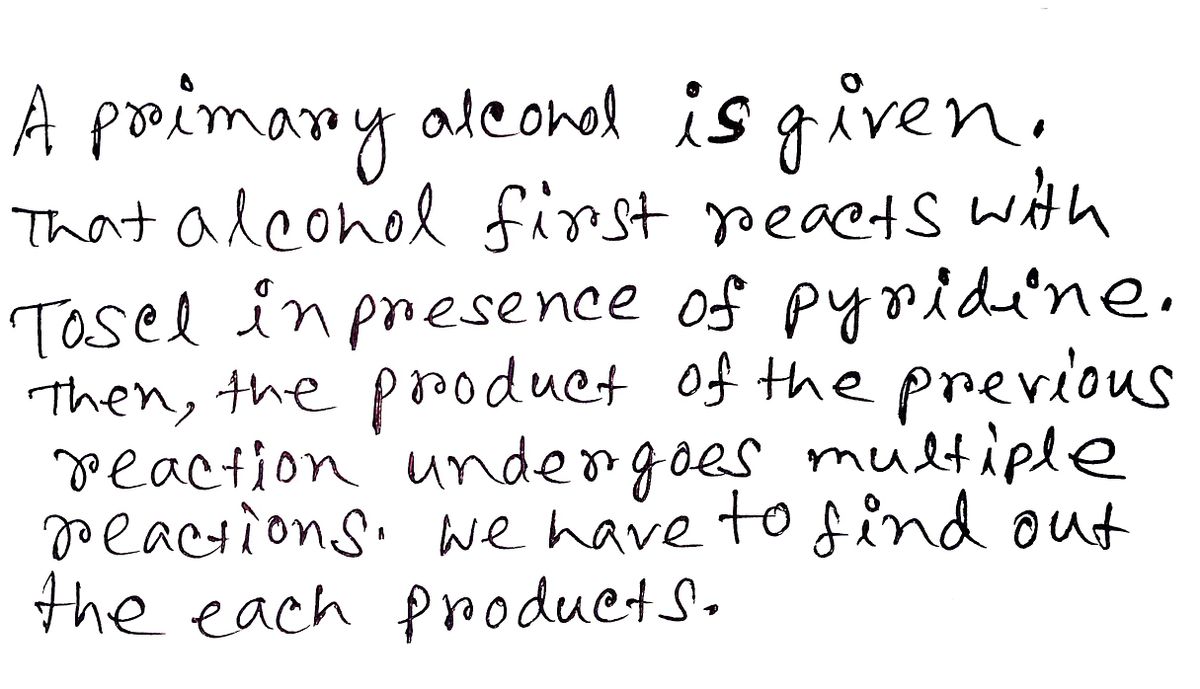 A primary alcohol is given.
That alcohol first reacts with
Toscl in presence of pyridine.
Then, the product of the previous
reaction undergoes multiple
reactions. We have to find out
the each products.